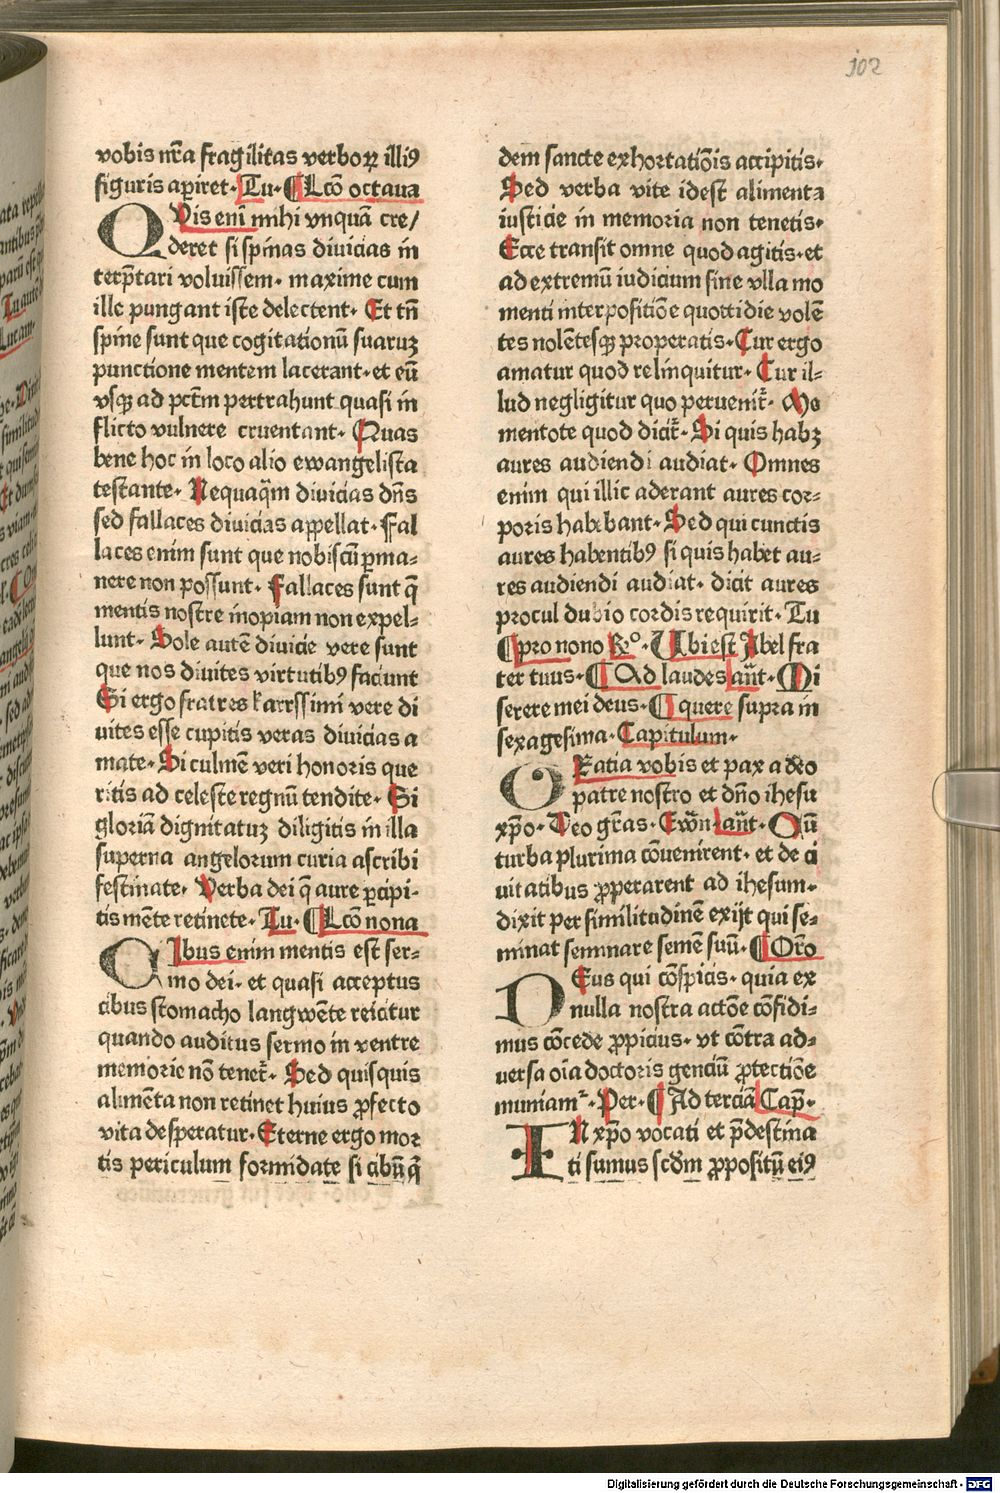 102
vobis nr̄a fragilitas verboꝝ illiꝰ
figuris aꝑiret. Tu. ¶ Lc̄o octaua
QVis eni mihi vnquā cre/
deret si spinas diuicias in
terp̄tari voluissem. maxime cum
ille pungant iste delectent. Et tn̄
spine sunt que cogitationū suaruꝫ
punctione mentem lacerant. et eū
vsqꝫ ad pctm̄ pertrahunt quasi in
flicto vulnere cruentant. Quas
bene hoc in loco alio ewangelista
testante. Nequaq̄m diuicias dn̄s
sed fallaces diuicias appellat. Fal
laces enim sunt que nobiscū ꝑma⸗
nere non possunt. Fallaces sunt q̄
mentis nostre inopiam non expel⸗
lunt. Sole autē diuicie vere sunt
que nos diuites virtutibꝰ faciunt
Si ergo fratres karrssimi vere di
uites esse cupitis veras diuicias a
mate. Si culmē veri honoris que
ritis ad celeste regnū tendite. Si
gloriā dignitatuꝫ diligitis in illa
superna angelorum curia ascribi
festinate. Verba dei q̄ aure ꝑcipi⸗
tis mēte retinete. Tu. ¶ Lc̄o nona
CIbus enim mentis est ser⸗
mo dei. et quasi acceptus
cibus stomacho langwēte reicitur
quando auditus sermo in ventre
memorie nō tenet᷑. Sed quisquis
alimēta non retinet huius ꝓfecto
vita desperatur. Eterne ergo mor
tis periculum formidate si cibū q̄
dem sancte exhortatiōis accipitis.
Sed verba vite idest alimenta
iusticie in memoria non tenetis.
Ecce transit omne quod agitis. et
ad extremū iudicium sine vlla mo
menti interpositiōe quottidie volē
tes nolētesqꝫ properatis. Cur ergo
amatur quod relinquitur. Cur il⸗
lud negligitur quo peruenit᷑. Me
mentote quod dicit᷑. Si quis habꝫ
aures audiendi audiat. Omnes
enim qui illic aderant aures cor⸗
poris habebant. Sed qui cunctis
aures habentibꝰ si quis habet au⸗
res audiendi audiat. dicit aures
procul dubio cordis requirit. Tu
¶ pro nono Rͦ. Vbi est Abel fra
ter tuus. ¶ Ad laudes an̄t. Mi
serere mei deus. ¶ quere supra in
sexagesima. Capitulum.
GRatia vobis et pax a deo
patre nostro et dn̄o ihesu
xp̄o. Deo gr̄as. Ewn̄. an̄t. Cū
turba plurima cōuenirent. et de ci
uitatibus ꝓperarent ad ihesum.
dixit per similitudinē exijt qui se⸗
minat seminare semē suū. ¶ Or̄o
DEus qui cōspicis. quia ex
nulla nostra actōe cōfidi⸗
mus cōcede ꝓpicius. vt cōtra ad⸗
uersa oīa doctoris genciū ꝓtectiōe
muniam᷑. Per. ¶ Ad terciā Cap̄.
IN xp̄o vocati et p̄destina
ti sumus scdm̄ ꝓpositū eiꝰ
Digitalisierung gefördert durch die Deutsche Forschungsgemeinschaft - DFG